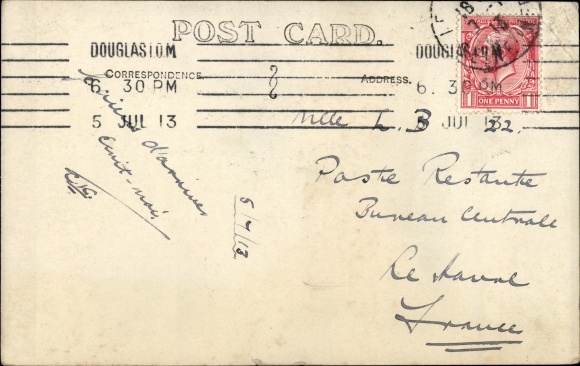 POST CARD.
DOUGLAS I O M
6. 30 PM
5 JUL 13
DOUGLAS I O M
6. 30 PM
5 JUL 13
ONE PENNY
CORRESPONDENCE.
ADDRESS.
d'amitiés
5/7/13
Mlle L. B 22.
Poste Restante
Bureau Centrale
Le Havre
France